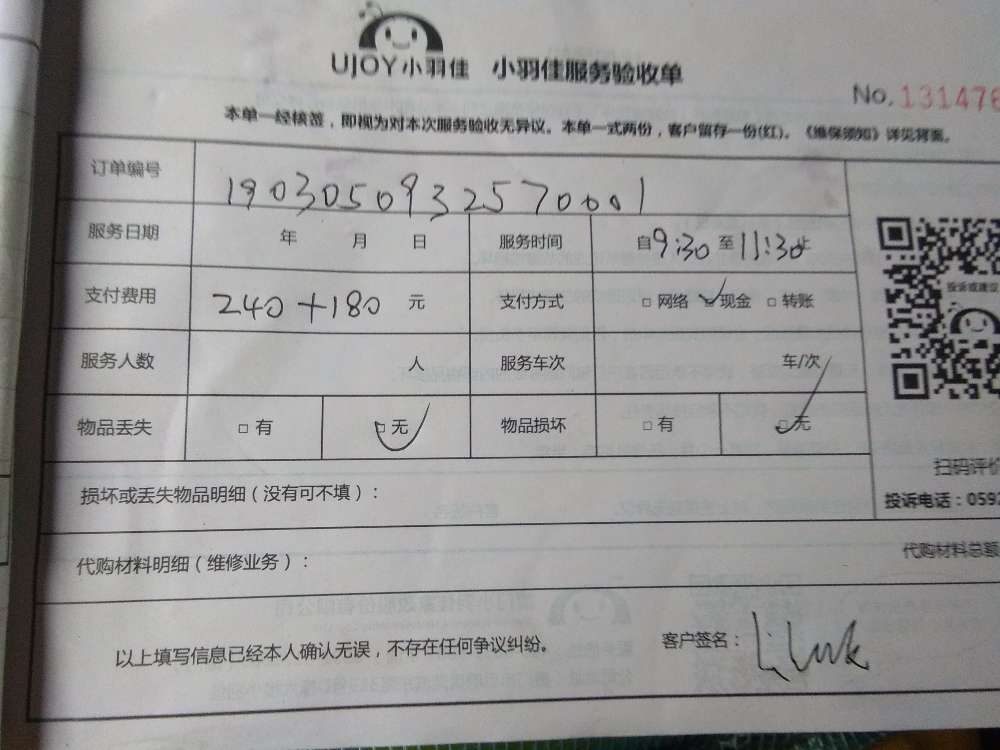 UJOY小羽佳 小羽佳服务验收单
No. 131476
本单一经核签，即视为对本次服务验收无异议。本单一式两份，客户留存一份(红)。《维保须知》详见背面。
订单编号 1903050932570001
服务日期 年 月 日 服务时间 自9:30至11:30止
支付费用 240+180 元 支付方式 □ 网络 ☑ 现金 □ 转账
投诉或建议
服务人数 人 服务车次 车/次
物品丢失 □ 有 ☑ 无 物品损坏 □ 有 ☑ 无
扫码评价
损坏或丢失物品明细（没有可不填）：
投诉电话：0592
代购材料明细（维修业务）： 代购材料总额
以上填写信息已经本人确认无误，不存在任何争议纠纷。 客户签名：